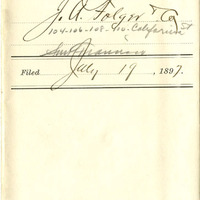 J. A. Folger & Co
104-106-108-110- California St
San Francisco
Filed July 19, 1897.